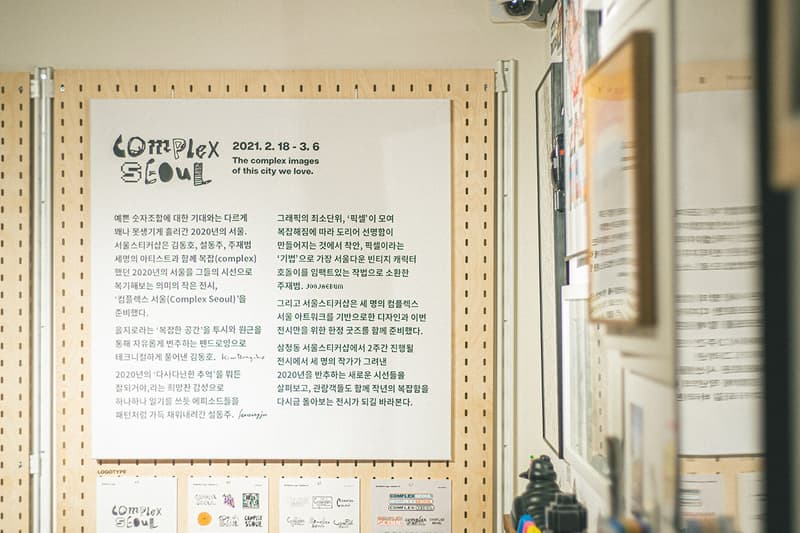 COMPLEX
SEOUL
2021. 2. 18 - 3. 6
The complex images
of this city we love.
예쁜 숫자조합에 대한 기대와는 다르게
꽤나 못생기게 흘러간 2020년의 서울.
서울스티커샵은 김동호, 설동주, 주재범
세명의 아티스트와 함께 복잡(complex)
했던 2020년의 서울을 그들의 시선으로
복기해보는 의미의 작은 전시,
‘컴플렉스 서울(Complex Seoul)’을
준비했다.
을지로라는 ‘복잡한 공간’을 투시와 원근을
통해 자유롭게 변주하는 펜드로잉으로
테크니컬하게 풀어낸 김동호.
2020년의 ‘다사다난한 추억’을 뭐든
잘되거야,라는 희망찬 감성으로
하나하나 일기를 쓰듯 에피소드들을
패턴처럼 가득 채워내려간 설동주.
그래픽의 최소단위, ‘픽셀’이 모여
복잡해짐에 따라 도리어 선명함이
만들어지는 것에서 착안, 픽셀이라는
‘기법’으로 가장 서울다운 빈티지 캐릭터
호돌이를 임팩트있는 작법으로 소환한
주재범. JOOJAEBUM
그리고 서울스티커샵은 세 명의 컴플렉스
서울 아트워크를 기반으로한 디자인과 이번
전시만을 위한 한정 굿즈를 함께 준비했다.
삼청동 서울스티커샵에서 2주간 진행될
전시에서 세 명의 작가가 그려낸
2020년을 반추하는 새로운 시선들을
살펴보고, 관람객들도 함께 작년의 복잡함을
다시금 돌아보는 전시가 되길 바라본다.
LOGOTYPE
COMPLEX
SEOUL